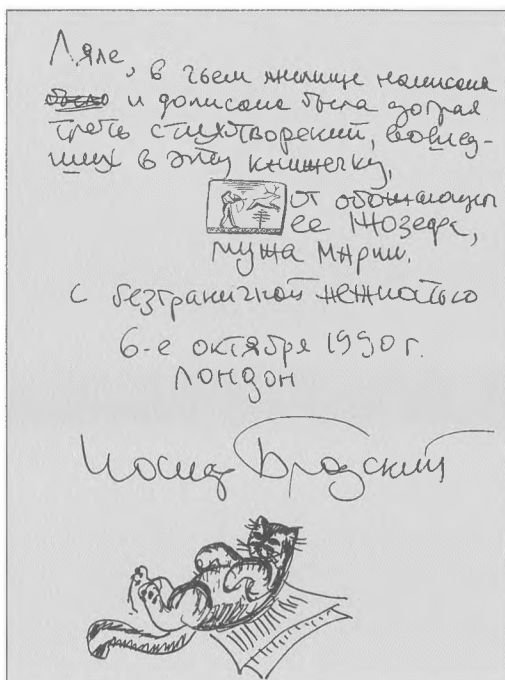 Ляле, в чьем жилище написана
было и дописана была добрая
треть стихтворений, вошед-
ших в эту книжечку,
от обожающего
ее Жозефа,
мужа Марии.
с безграничной нежностью
6-е октября 1990 г.
Лондон
Иосиф Бродский